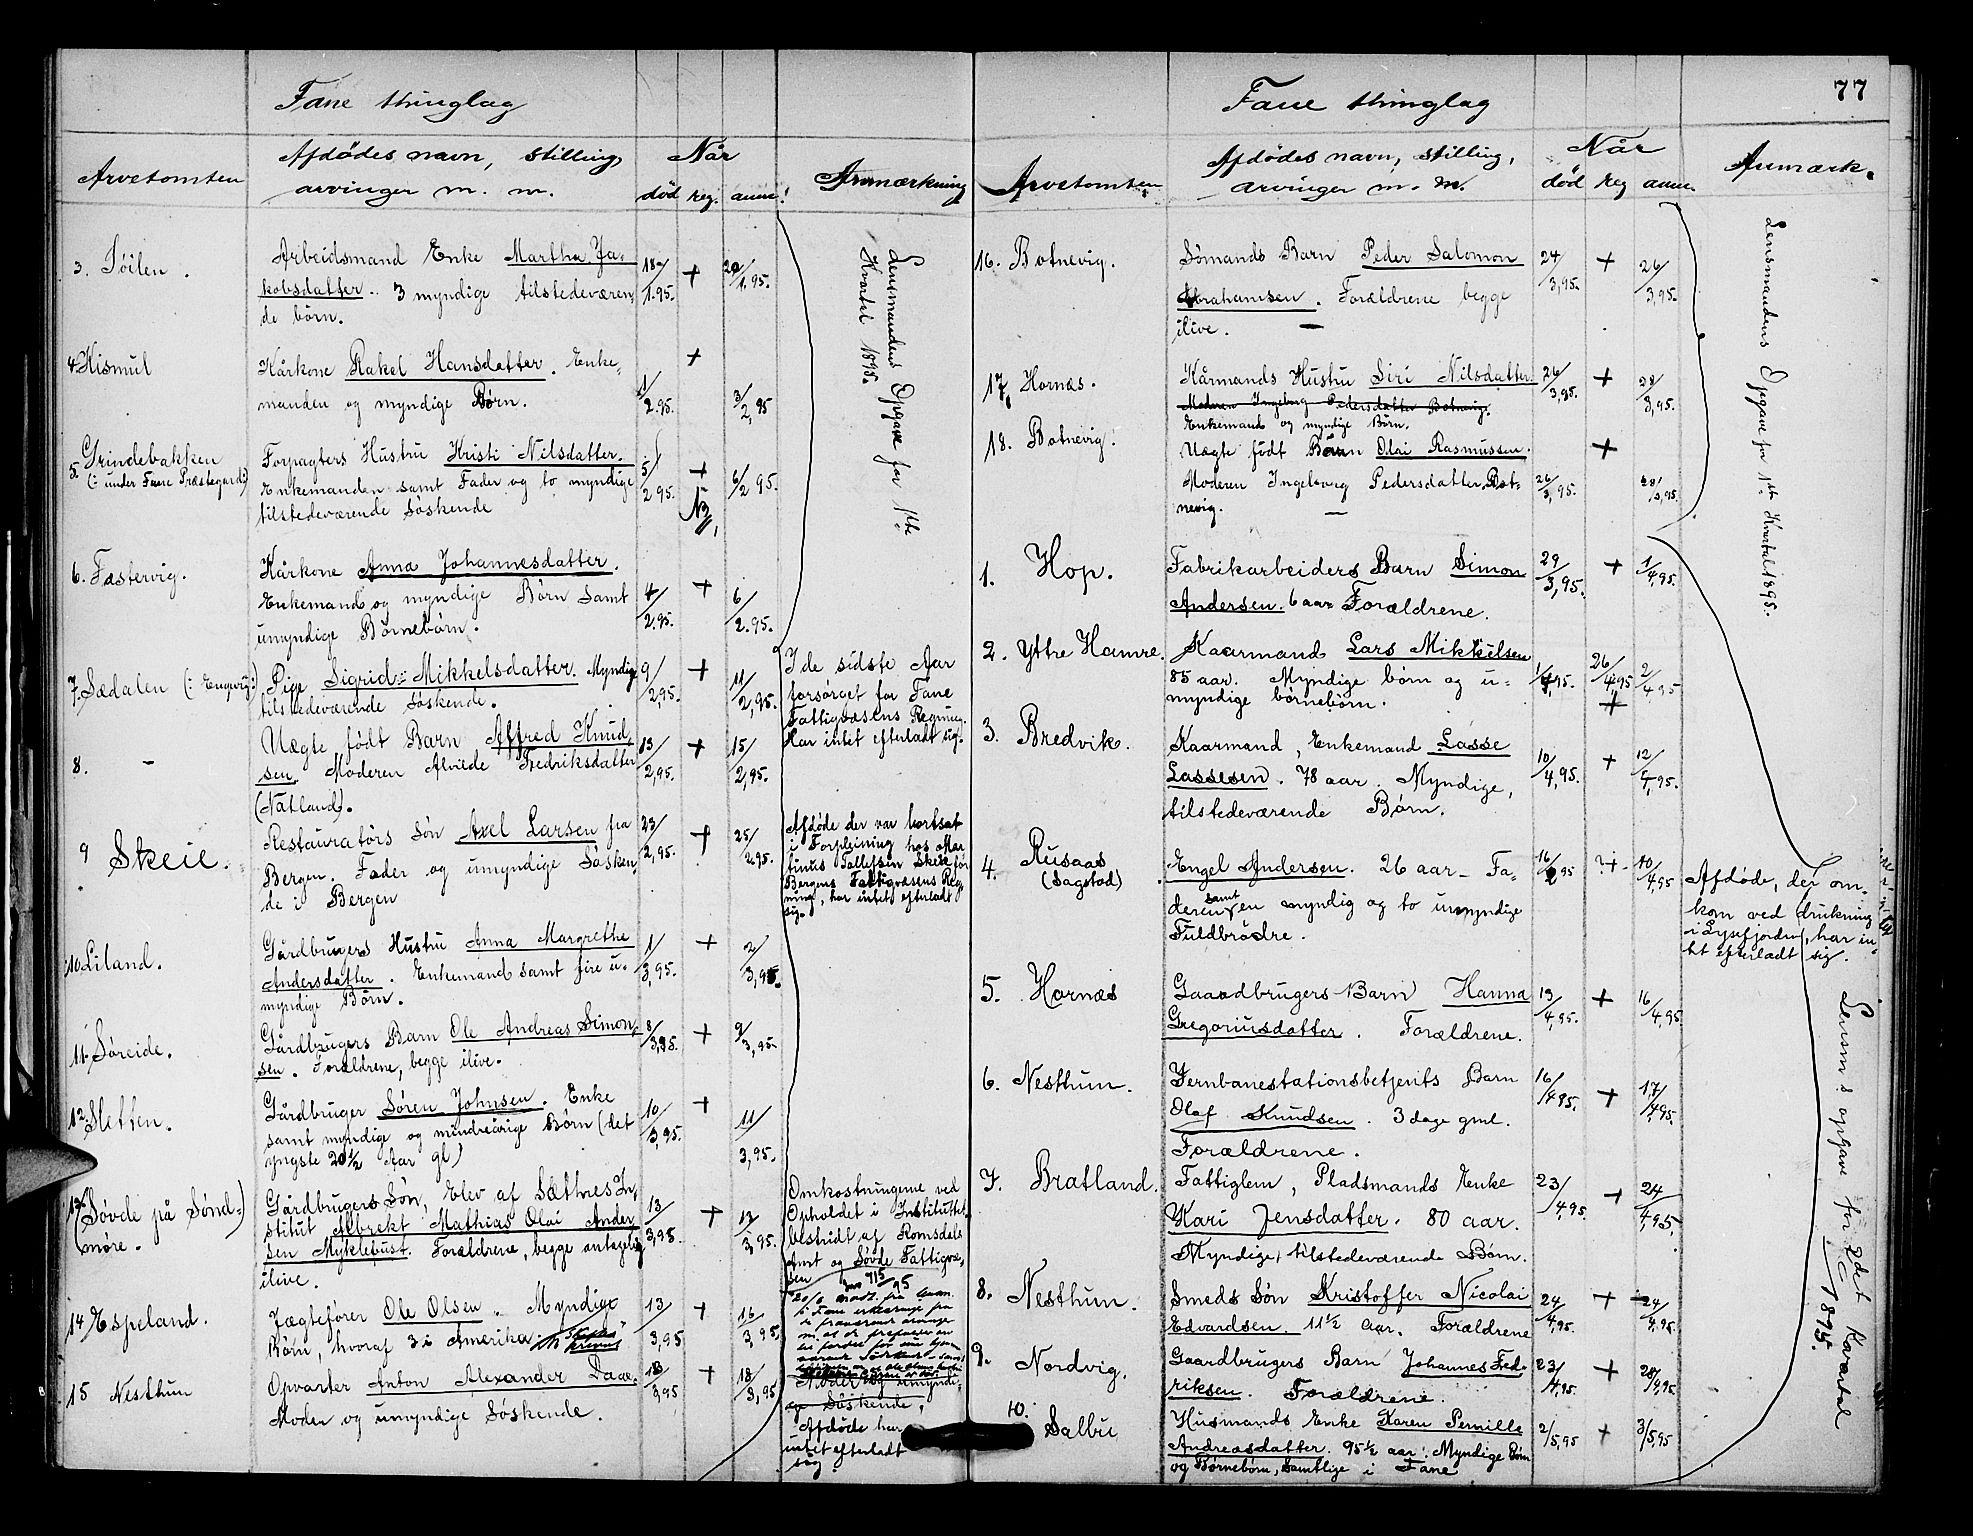 Fane thinglag
Arvetomten
Afdödes navn, stilling
arvinger m. m.
Når
död reg. anm!
Anmærkning
Lensmandens Opgave for 1ste
Kvartal 1895.
3. Töilen.
Arbeidsmand Enke Martha Ja-
kobsdatter. 3 myndige tilstedeværen-
de börn.
18/1.95. + 20/1.95.
4 Kismul
Kårkone Rakel Hansdatter. Enke-
manden og myndige Børn.
1/2.95. + 3/2,95
5. Grindebakken
(: under Fane Præstegard:)
Forpagters Hustru Kristi Nilsdatter.
Enkemanden samt Fader og to myndige
tilstedeværende Söskende
5/2 95. + 6/2 95.
NB
6. Fastervig.
Kårkone Anna Johannesdatter.
Enkemand og myndige Börn samt
umyndige Börnebörn.
4/2.95. + 6/2.95.
7. Sædalen (: Engvig:)
Pige Sigrid Mikkelsdatter. Myndige
tilstedeværende Söskende.
9/2,95. + 11/2,95.
I de sidste Aar
forsörget for Fane
Fattigvæsens Regning.
Har intet efterladt sig.
8. -
Uægte født Barn Alfred Knud-
sen. Moderen Alvilde Fredriksdatter
(Natland).
13/2,95. + 15/2,95.
9. Skeie.
Restauratörs Sön Axel Larsen fra
Bergen. Fader og umyndige Sösken-
de i Bergen
23/2,95. + 25/2.95.
Afdöde der var bortsat
i Forpleining hos Mar
tinus Tollefsen Skeie for
Bergens Fattigvæsens Reg
ning, har intet efterladt
sig.
10 Liland.
Gårdbrugers Hustru Anna Margrethe
Andersdatter. Enkemand samt fire u-
myndige Börn.
1/3,95. + 2/3,95.
11. Söreide.
Gårdbrugers Barn Ole Andreas Simon-
sen. Forældrene, begge ilive.
8/3,95. + 9/3,95.
12 Sletten.
Gårdbruger Sören Johnsen. Enke
samt myndige og mindreårige Börn (det
yngste 20 1/2 Aar gl)
10/3,95. + 11/3,95.
13 (Sövde på Sönd-)
möre.
Gårdbrugers Sön, Elev af Sæthres In-
stitut Albrekt Mathias Olai Ander
sen Myklebust. Forældrene, begge antagelig
ilive.
13/3,95. + 17/3,95.
Omkostningerne ved
Opholdet i Instituttet
bestridt af Romsdals
Amt og Sövde Fattigvæ-
sen
14 Espeland.
Jægtefører Ole Olsen. Myndige
Börn, hvoraf 3 i Amerika.
13/3,95 + 16/3,95.
15 Nesthun
Opvarter Anton Alexander Daae.
Moder og umyndige Söskende.
18/3,95 + 18/3,95
Moder og umyndi-
ge Söskende,
Afdöde har
intet efterladt
sig.
Fane thinglag
77
Arvetomten
Afdödes navn, stilling,
arvinger m. m.
Når
död reg anm.
Anmærk.
Lensmandens Opgave for 1ste Kvartal 1895.
16. Botnevig.
Sömands Barn Peder Salomon
Abrahamsen. Forældrene begge
ilive.
24/3,95. + 26/3,95.
17, Hornæs.
Kårmands Hustru Siri Nilsdatter.
Moderen Ingeborg Pedersdatter Botnevig.
Enkemand og myndige Börn.
26/3,95. + 28/3,95.
18. Botnevig.
Uægte født Barn Olai Rasmussen.
Moderen Ingeborg Pedersdatter, Bot-
nevig.
26/3,95. + 28/3,95.
1. Hop.
Fabrikarbeiders Barn Simon
Andersen. 6 aar Forældrene.
29/3,95. + 1/4,95.
2. Ytre Hamre.
Kaarmand Lars Mikkelsen
85 aar. Myndige börn og u-
myndige börnebörn.
1/4,95. 26/4,95 + 2/4,95
3. Bredvik.
Kaarmand, Enkemand Lasse
Lassesen. 78 aar. Myndige,
tilstedeværende Börn.
10/4,95. + 12/4,95.
4. Rusaas
(Sagstad)
Engel Andersen. 26 aar - Fa-
deren samt en myndig og to umyndige
Fuldbrödre.
16/2 95 ?+ 10/4,95
Afdöde, der om-
kom ved drukning
i Lysefjorden, har in-
tet efterladt sig.
5. Hornæs
Gaardbrugers Barn Hanna
Gregoriusdatter. Forældrene.
13/4,95. + 16/4,95.
Lensm.s opgave for 2det Kvartal
1895.
6. Nesthun.
Jernbanestationsbetjents Barn
Olaf Knudsen. 3 dage gml.
Forældrene.
16/4,95. + 17/4,95.
7. Bratland.
Fattiglem, Pladsmands Enke
Kari Jensdatter. 80 aar.
Myndige, tilstedeværende Börn.
23/4,95. + 24/4,95.
8. Nesthun.
Smeds Sön Kristoffer Nicolai
Edvardsen. 11 1/2 aar. Forældrene
24/4,95. + 24/4,95.
9. Nordvig.
Gaardbrugers Barn Johannes Fred-
riksen. Forældrene.
23/4,95. + 28/4,95.
10. Salbu
Husmands Enke Karen Pernille
Andreasdatter. 95 1/2 aar. Myndige Börn
og Börnebörn, samtlige i Fane
2/5,95 + 3/5,95